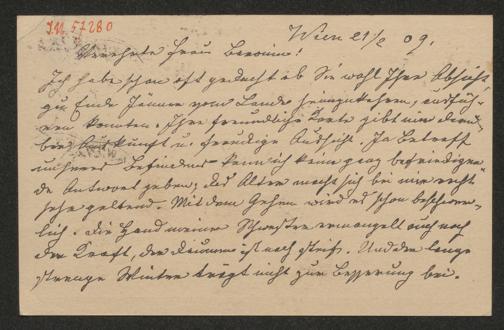 I.N. 57280
Wien 21/2 09.
Verehrte Frau Baronin!
Ich habe schon oft gedacht ob Sie wohl Ihre Absicht,
zu Ende Jänner vom Lande heimzukehren, ausfüh-
ren konnten. Ihre freundliche Karte gibt nun darü-
ber Auskunft u. freudige Aussicht. In Betreff
unseres Befindens kann ich keine ganz befriedigen-
de Antwort geben, das Alter macht sich bei mir recht
sehr geltend. Mit dem Gehen wird es schon beschwer-
lich. Die Hand meiner Schwester ermangelt auch noch
der Kraft, der Daumen ist noch steif. Und der lange
strenge Winter trägt nicht zur Besserung bei.